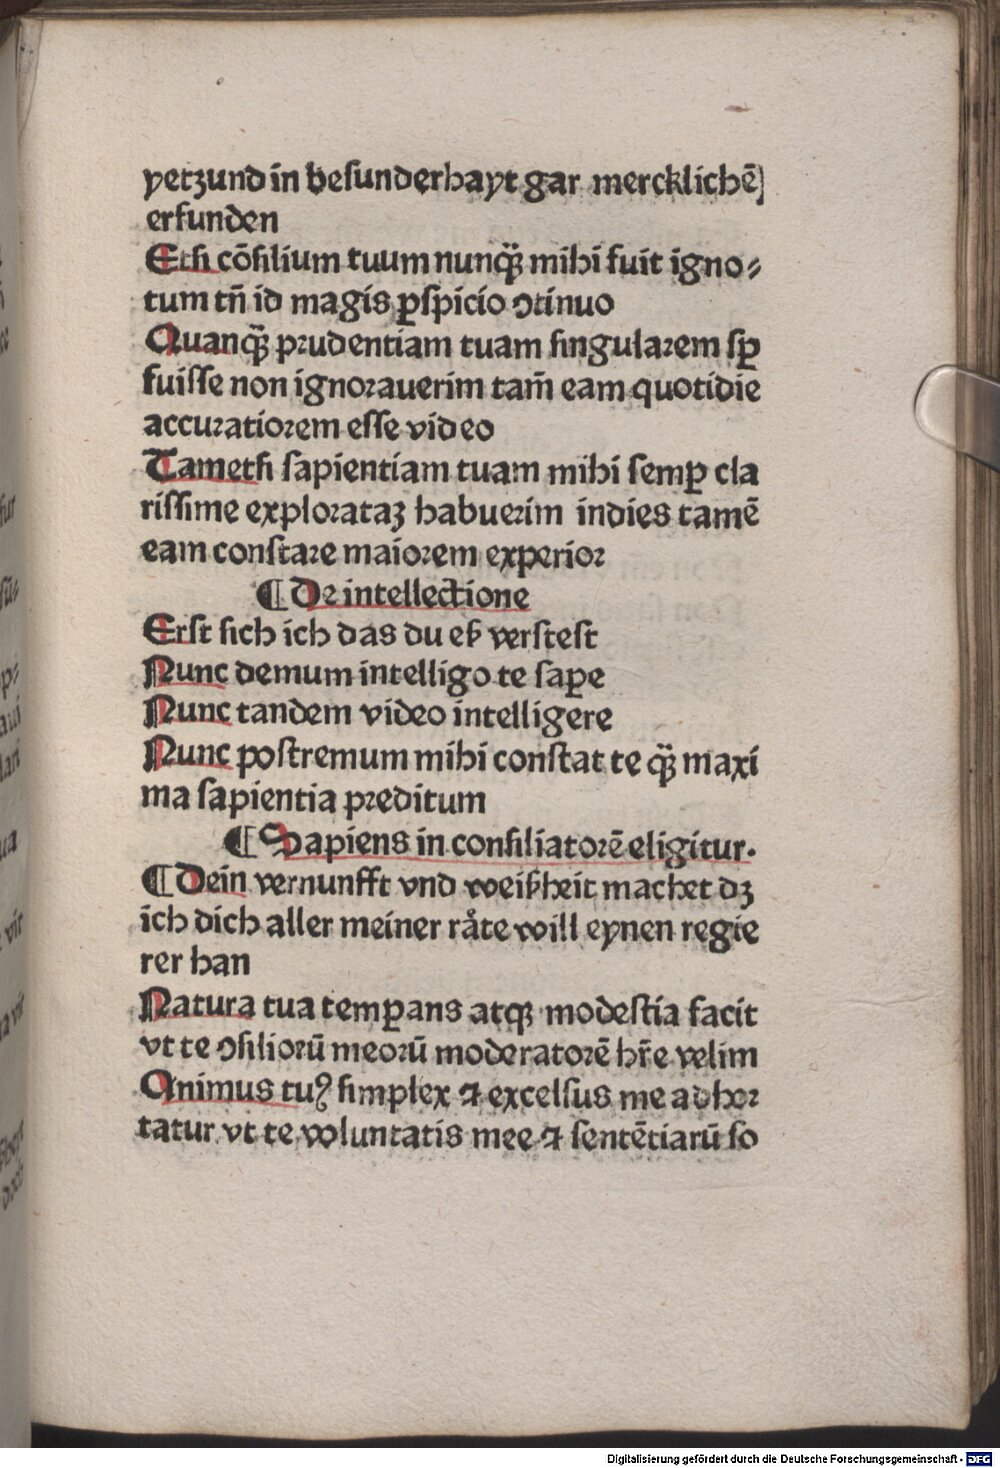 yetzund in besunderhayt gar mercklichē
erfunden
Etsi cōsilium tuum nunqꝫ mihi fuit igno⸗
tum tn̄ id magis ꝑspicio ↄtinuo
Quanqꝫ prudentiam tuam singularem sꝑ
fuisse non ignorauerim tam̄ eam quotidie
accuratiorem esse video
Tametsi sapientiam tuam mihi semꝑ cla
rissime explorataʒ habuerim indies tamē
eam constare maiorem experior
¶ De intellectione
Erst sich ich das du eß verstest
Nunc demum intelligo te saꝑe
Nunc tandem video intelligere
Nunc postremum mihi constat te qꝫ maxi
ma sapientia preditum
¶ Sapiens in consiliatorē eligitur.
¶ Dein vernunfft vnd weißheit machet dʒ
ich dich aller meiner råte will eynen regie
rer han
Natura tua temꝑans atqꝫ modestia facit
vt te ↄsiliorū meorū moderatorē hr̄e velim
Animus tuꝰ simplex ⁊ excelsus me adhor
tatur vt te voluntatis mee ⁊ sentētiarū so
Digitalisierung gefördert durch die Deutsche Forschungsgemeinschaft - DFG